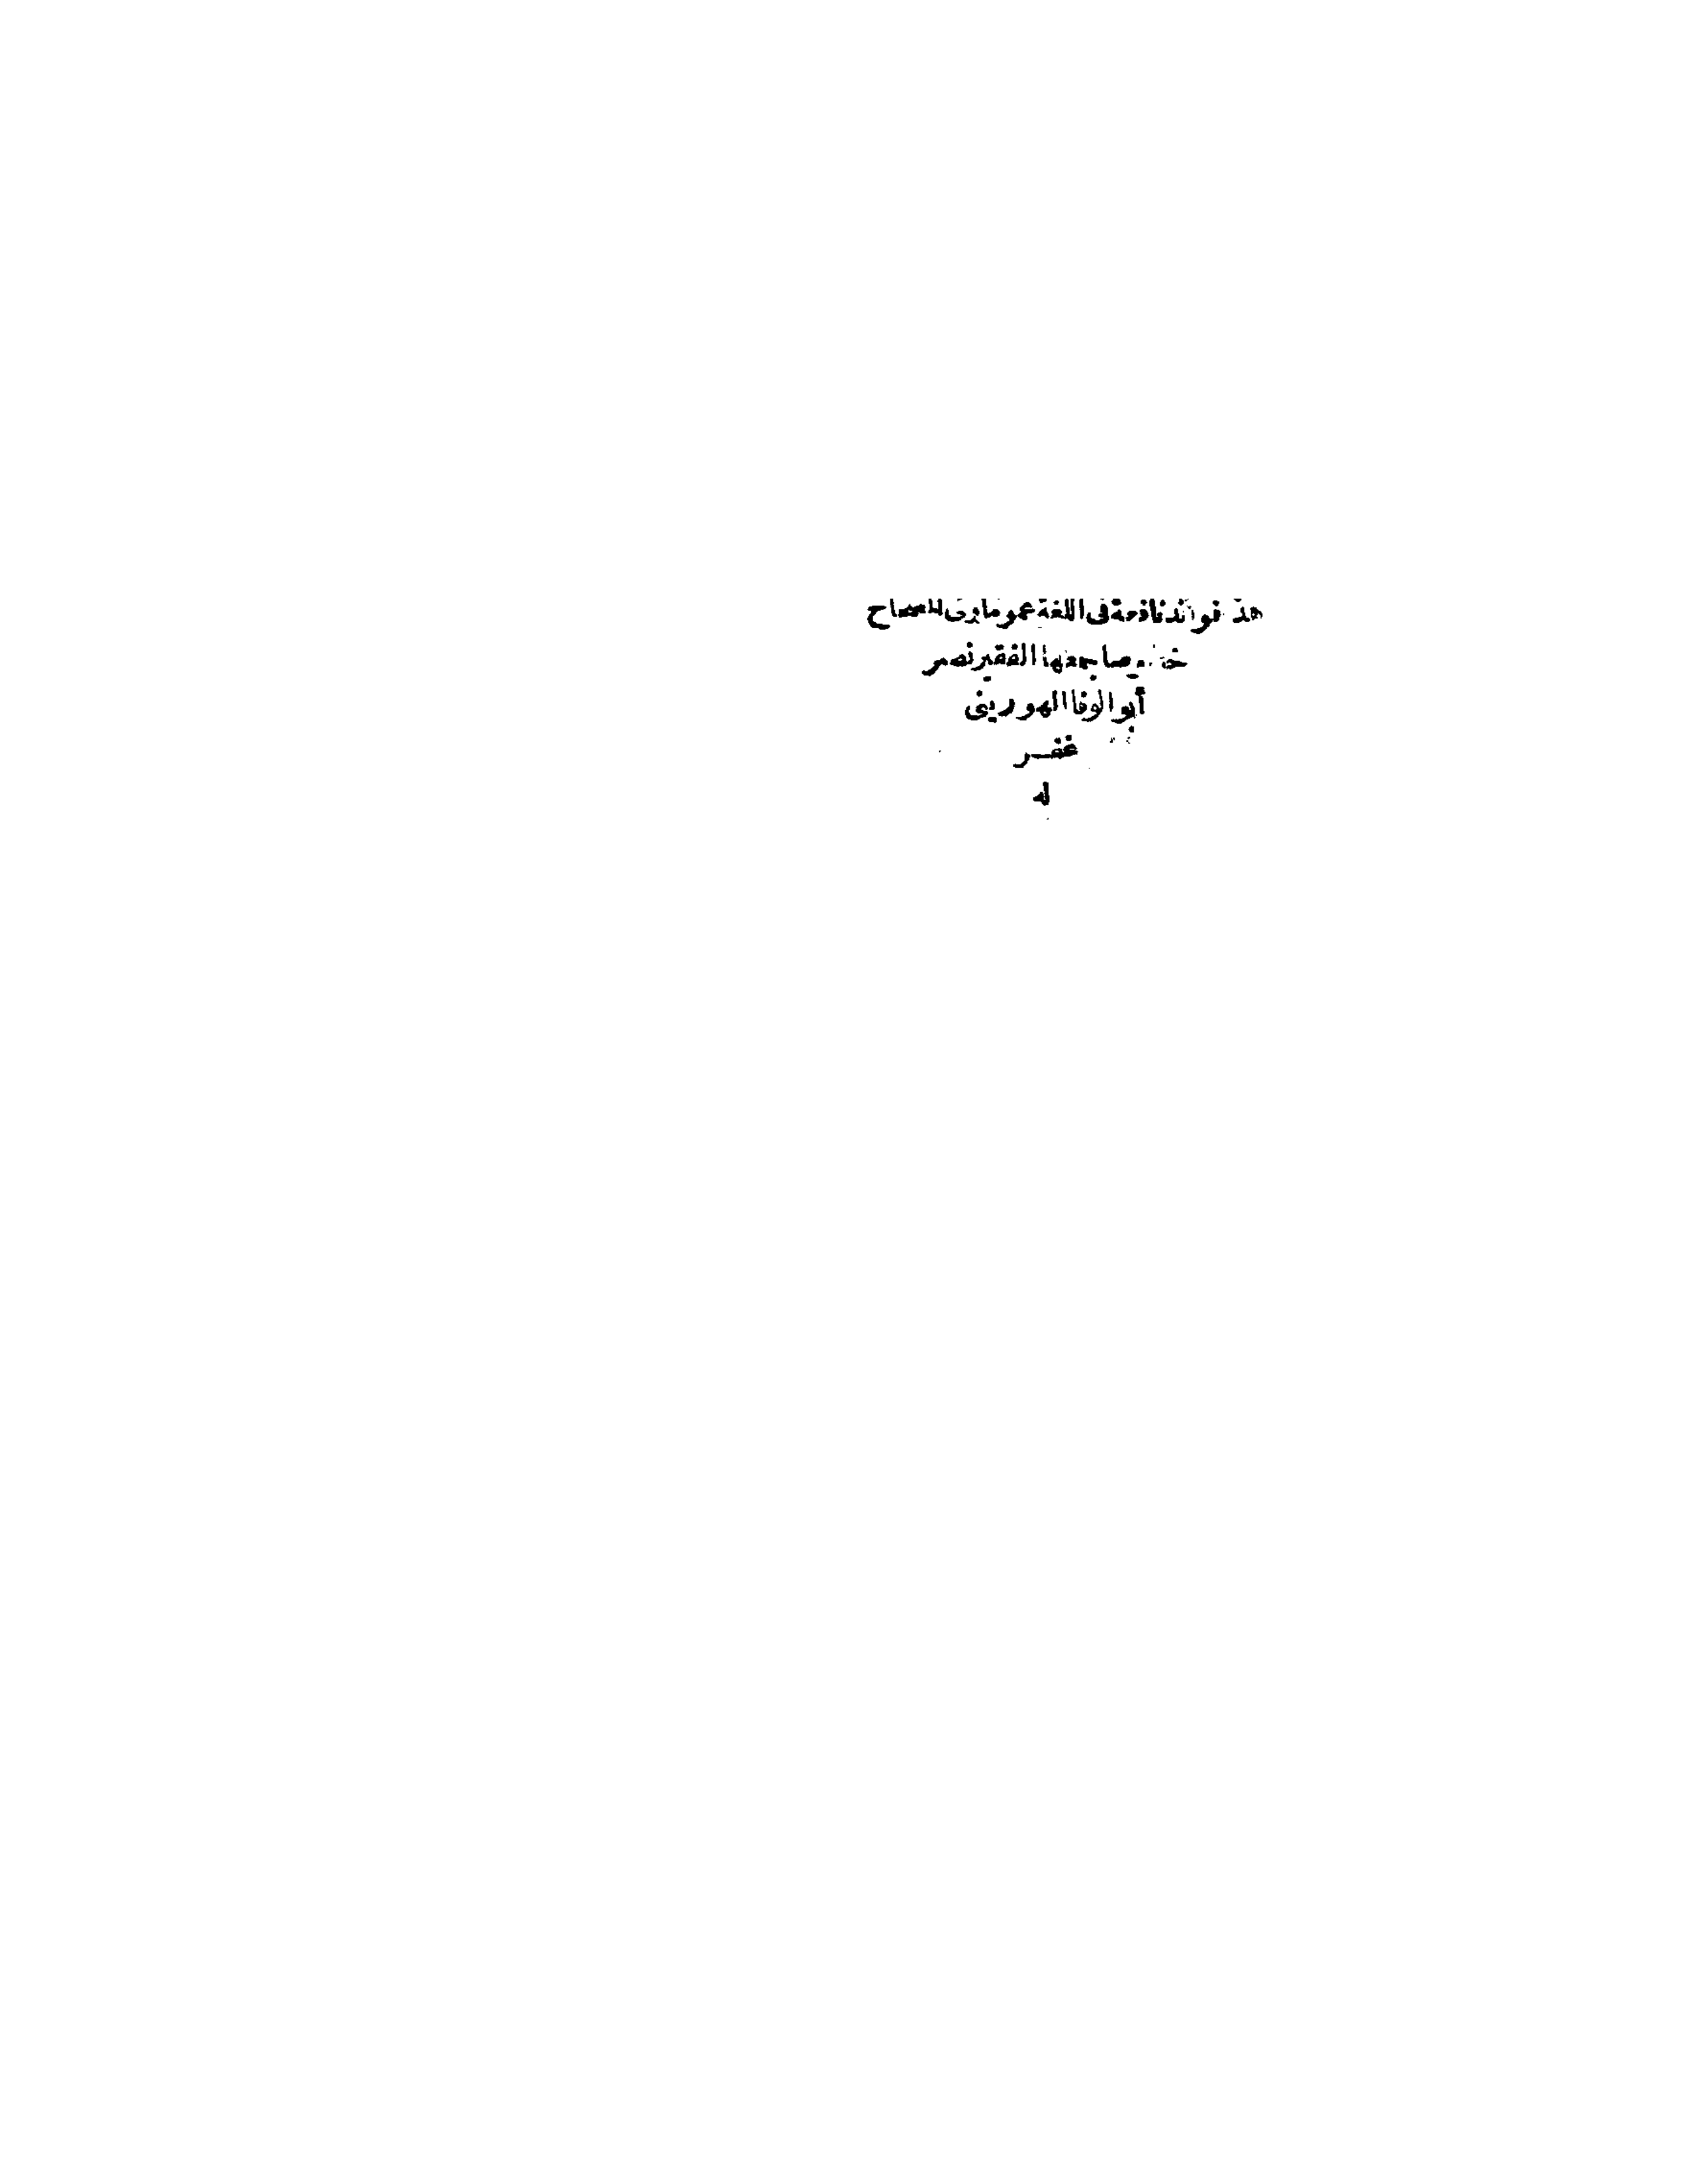 هذه فوائد نافعة فى اللغة عموما وفى الصحاح
خصوصا جمعها الفقير نصر
أبو الوفا الهورينى
غفر
له